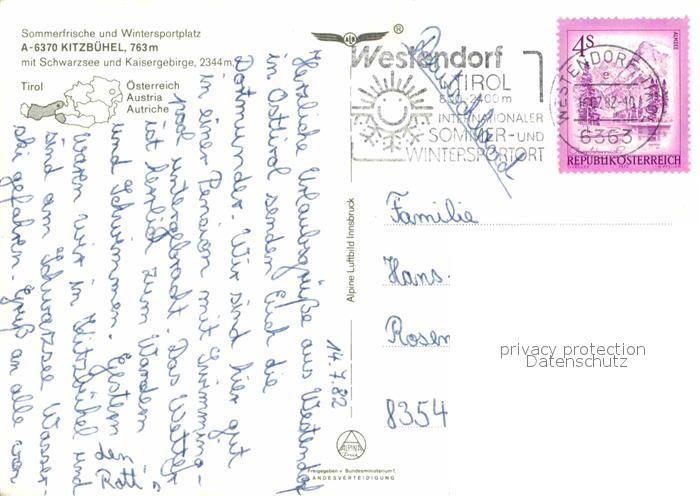 Sommerfrische und Wintersportplatz
A-6370 KITZBÜHEL, 763 m
mit Schwarzsee und Kaisergebirge, 2344 m,
Tirol
Österreich
Austria
Autriche
Herzliche Urlaubsgrüße aus Westendorf
in Osttirol senden Euch die
Dortmunder. Wir sind hier gut
in einer Pension mit Swimming-
pool untergebracht. Das Wetter
ist herrlich zum Wandern
und Schwimmen. Gestern
waren wir in Kitzbühel und
sind am Schwarzsee Wasser-
ski gefahren. Gruß an alle von
den
14.7.82
Alpine Luftbild Innsbruck
ALPINE
Freigegeben v. Bundesministerium f.
LANDESVERTEIDIGUNG
Westendorf
TIROL
800-2400 m
INTERNATIONALER
SOMMER- UND
WINTERSPORTORT
Deutschland
WESTENDORF, TIROL
6363
4 S
ALMSEE
REPUBLIK ÖSTERREICH
Familie
Hans
Rosen
8354
privacy protection
Datenschutz